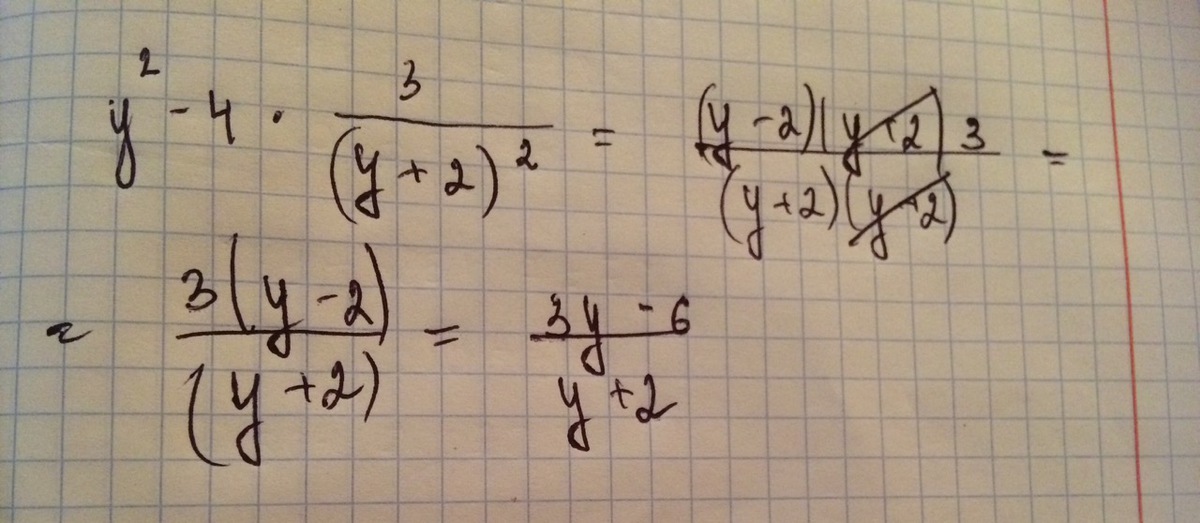 y² - 4 · 3/(y + 2)² = (y - 2)(y + 2) 3/(y + 2)(y + 2) =
= 3(y - 2)/(y + 2) = 3y - 6/y + 2